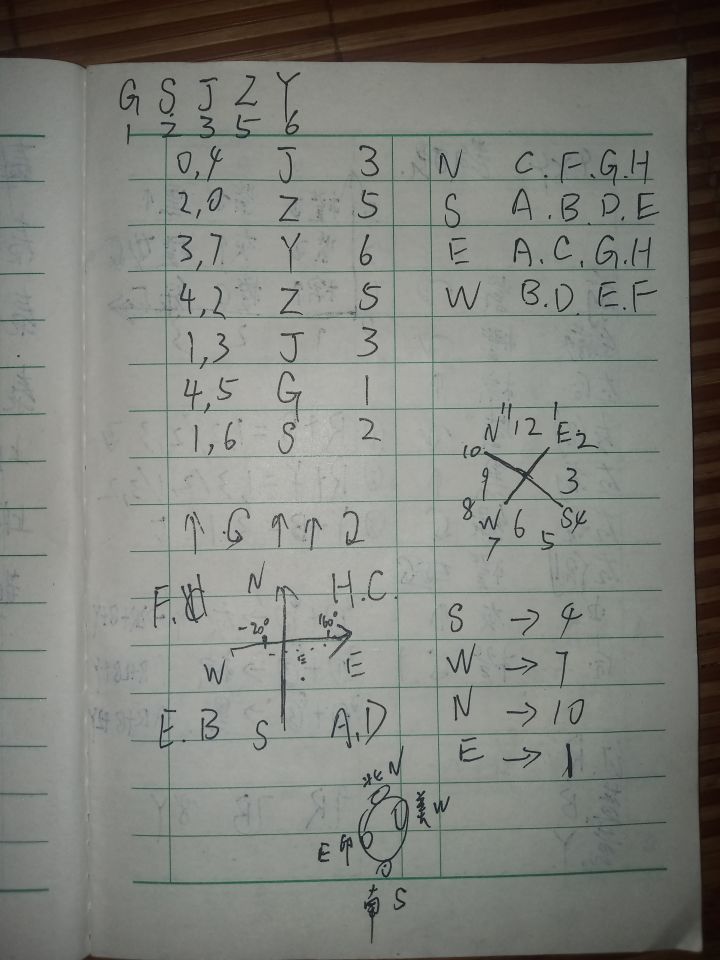 G S J Z Y
1 2 3 5 6
0,4 J 3
2,0 Z 5
3,7 Y 6
4,2 Z 5
1,3 J 3
4,5 G 1
1,6 S 2
N C.F.G.H
S A.B.D.E
E A.C.G.H
W B.D.E.F
N 11 12 1 E 2
10
9 3
8 W 6 S 4
7 5
↑ G ↑ ↑ 2
F. N H.C.
-20° 160°
W E
E.B S A,D
S → 4
W → 7
N → 10
E → 1
北 N
美 W
E 印
南 S